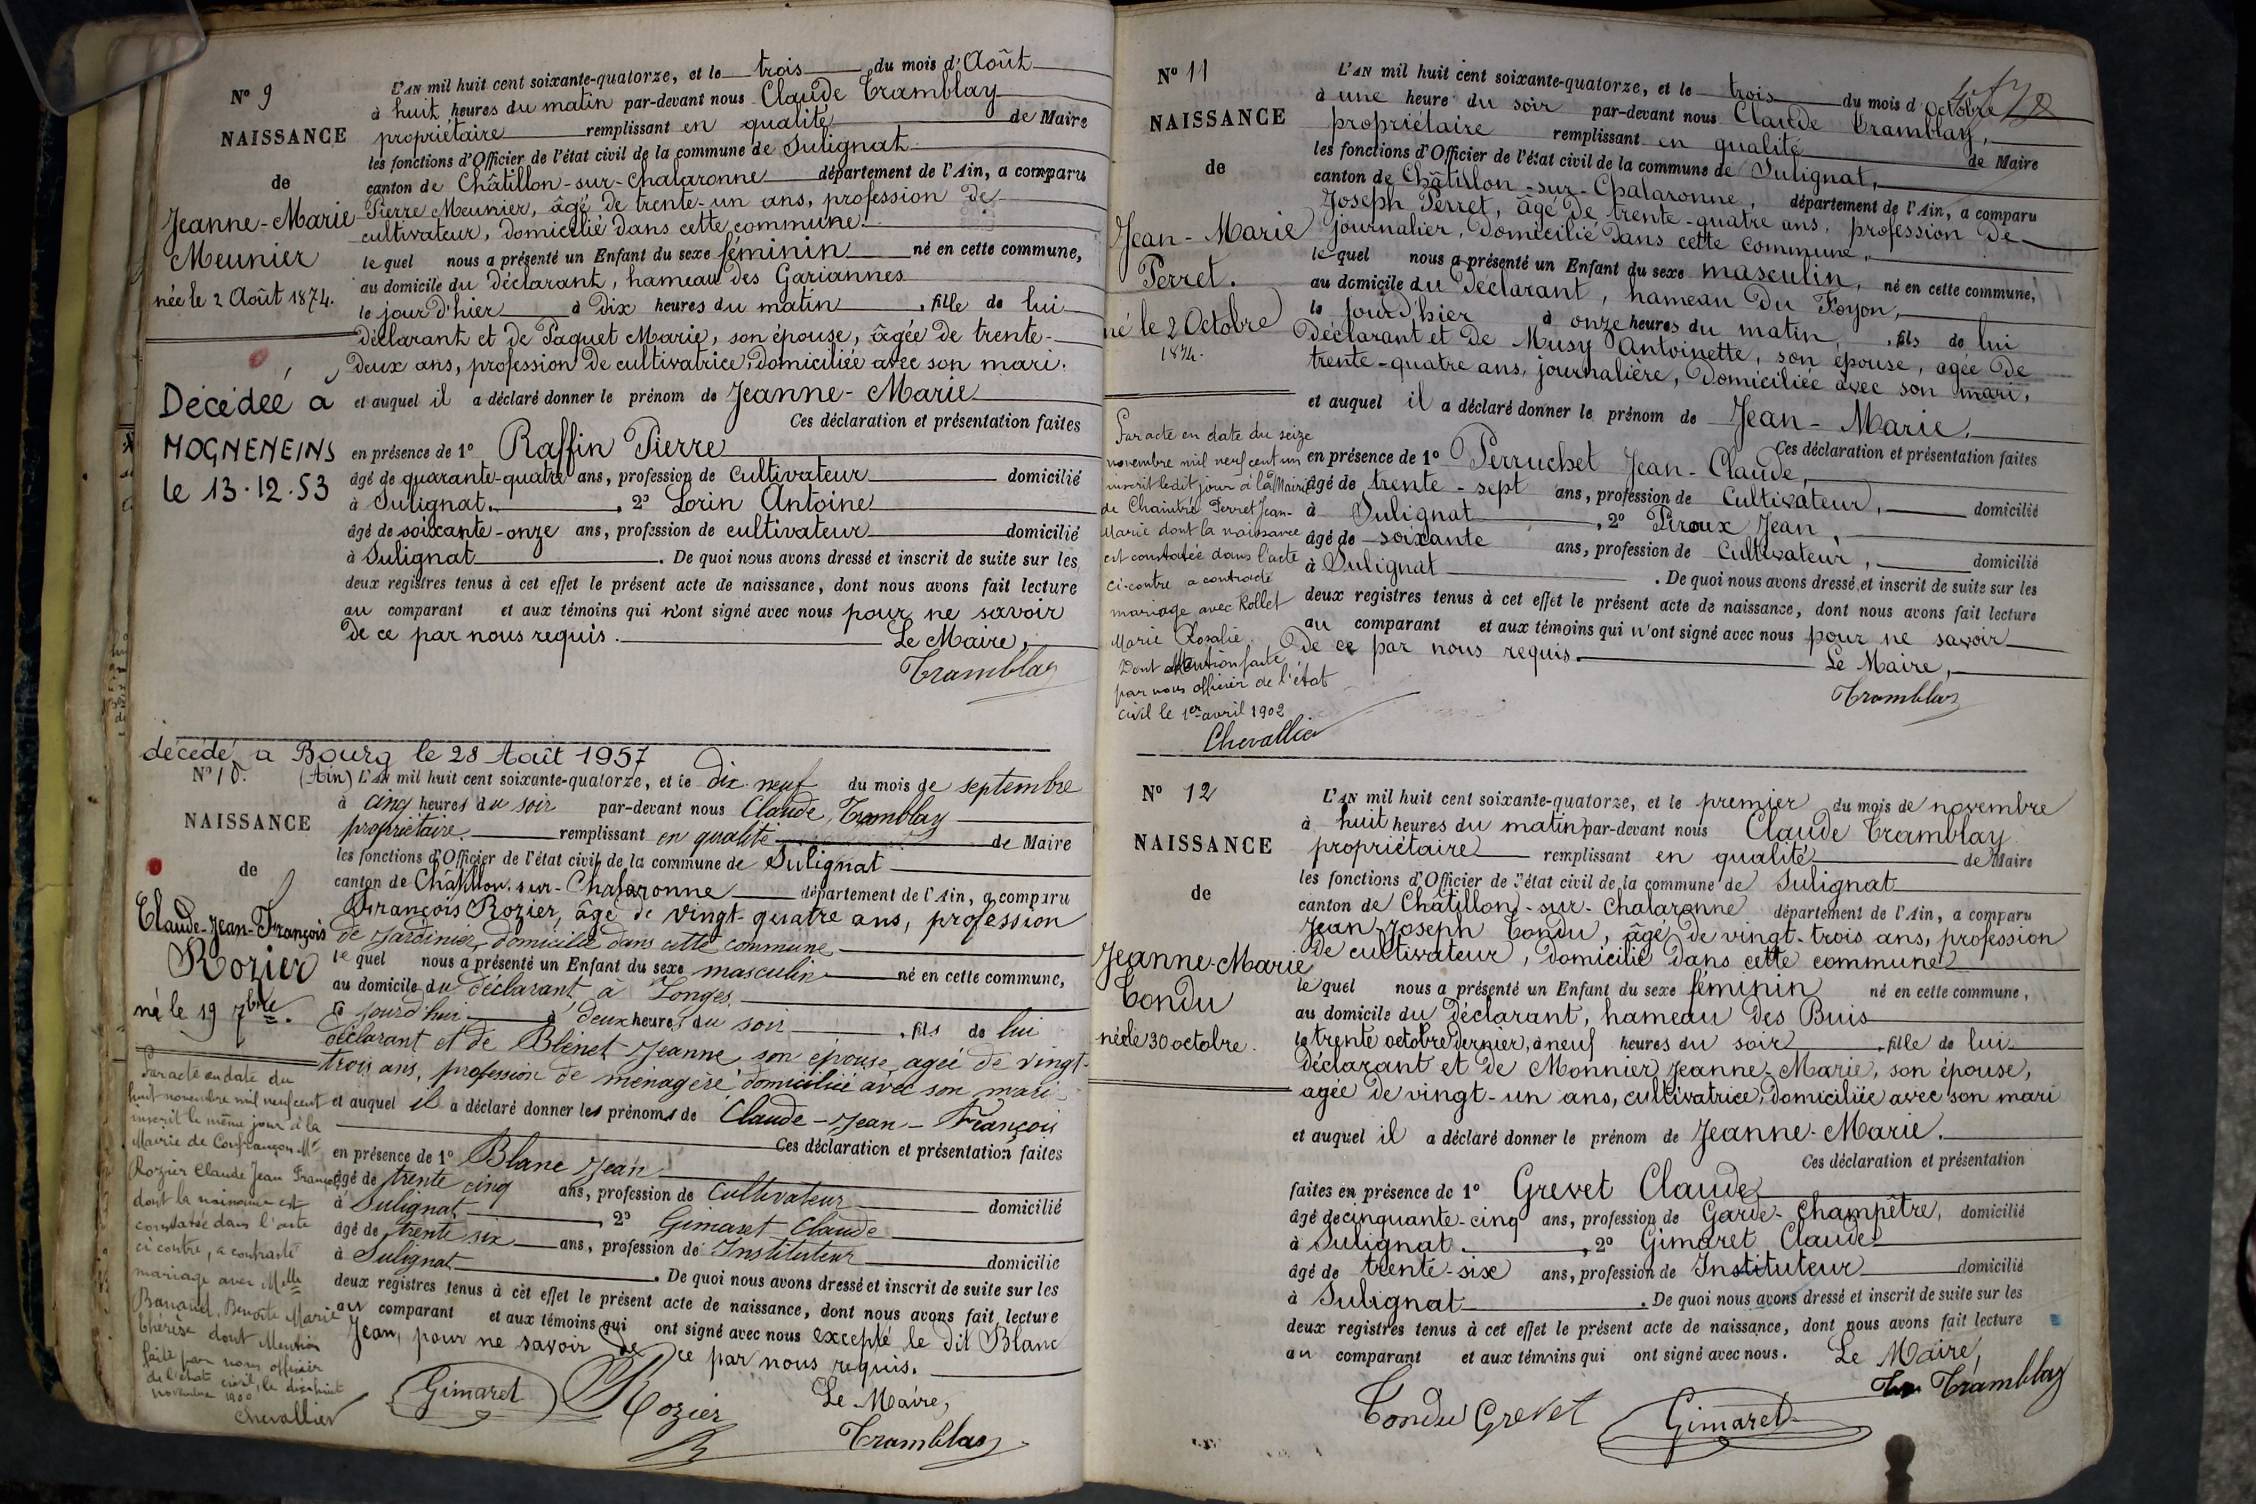 Nº 9
NAISSANCE
de
Jeanne-Marie
Meunier
née le 2 Août 1874.
Décédée à
MOGNENEINS
le 13.12.53
L'AN mil huit cent soixante-quatorze, et le trois du mois d'Août
à huit heures du matin par-devant nous Claude Tramblay
propriétaire remplissant en qualité de Maire
les fonctions d'Officier de l'état civil de la commune de Sulignat
canton de Châtillon-sur-Chalaronne département de l'Ain, a comparu
Pierre Meunier, âgé de trente-un ans, profession de
cultivateur, domicilié dans cette commune.
lequel nous a présenté un Enfant du sexe féminin né en cette commune,
au domicile du déclarant, hameau des Gariannes
le jour d'hier à dix heures du matin, fille de lui
déclarant et de Paquet Marie, son épouse, âgée de trente-
deux ans, profession de cultivatrice, domiciliée avec son mari.
et auquel il a déclaré donner le prénom de Jeanne-Marie
Ces déclaration et présentation faites
en présence de 1º Raffin Pierre
âgé de quarante-quatre ans, profession de cultivateur domicilié
à Sulignat, 2º Lorin Antoine
âgé de soixante-onze ans, profession de cultivateur domicilié
à Sulignat. De quoi nous avons dressé et inscrit de suite sur les
deux registres tenus à cet effet le présent acte de naissance, dont nous avons fait lecture
au comparant et aux témoins qui n'ont signé avec nous pour ne savoir
de ce par nous requis. Le Maire,
Tramblay
décédé a Bourg le 28 Août 1957
(Ain)
Nº 10.
NAISSANCE
de
Claude-Jean-François
Rozier
né le 19 7bre.
Par acte en date du
huit novembre mil neuf cent
inscrit le même jour à la
Mairie de Confrançon Mr
Rozier Claude Jean François
dont la naissance est
constatée dans l'acte
ci contre, a contracté
mariage avec Melle
Benoîte Marie
Thérèse dont Mention
faite par nous officier
de l'état civil, le dix huit
novembre 1900
Chevallier
L'AN mil huit cent soixante-quatorze, et le dix neuf du mois de septembre
à cinq heures du soir par-devant nous Claude Tramblay
propriétaire remplissant en qualité de Maire
les fonctions d'Officier de l'état civil de la commune de Sulignat
canton de Châtillon-sur-Chalaronne département de l'Ain, a comparu
François Rozier, âgé de vingt-quatre ans, profession
de Jardinier, domicilié dans cette commune
lequel nous a présenté un Enfant du sexe masculin né en cette commune,
au domicile du déclarant, à Longes
le jourd'hui à deux heures du soir, fils de lui
déclarant et de Blenet Jeanne son épouse, agée de vingt-
trois ans, profession de ménagère domiciliée avec son mari
et auquel il a déclaré donner les prénoms de Claude-Jean-François
Ces déclaration et présentation faites
en présence de 1º Blanc Jean
âgé de trente cinq ans, profession de cultivateur domicilié
à Sulignat, 2º Gimaret Claude
âgé de trente six ans, profession de Instituteur domicilié
à Sulignat. De quoi nous avons dressé et inscrit de suite sur les
deux registres tenus à cet effet le présent acte de naissance, dont nous avons fait lecture
au comparant et aux témoins qui ont signé avec nous excepté le dit Blanc
Jean, pour ne savoir de ce par nous requis.
Gimaret Rozier Le Maire,
Tramblay
Nº 11
NAISSANCE
de
Jean-Marie
Perret.
né le 2 Octobre
1874.
Par acte en date du seize
novembre mil neuf cent un
inscrit ledit jour à la Mairie
de Chaintré Perret Jean-
Marie dont la naissance
est constatée dans l'acte
ci-contre a contracté
mariage avec Rollet
Marie Rosalie.
Dont Mention faite
par nous officier de l'état
civil le 1er avril 1902
Chevallier
L'AN mil huit cent soixante-quatorze, et le trois du mois d'Octobre
à une heure du soir par-devant nous Claude Tramblay,
propriétaire remplissant en qualité de Maire
les fonctions d'Officier de l'état civil de la commune de Sulignat,
canton de Châtillon-sur-Chalaronne, département de l'Ain, a comparu
Joseph Perret, âgé de trente-quatre ans, profession de
journalier, domicilié dans cette commune,
lequel nous a présenté un Enfant du sexe masculin, né en cette commune,
au domicile du déclarant, hameau du Foyon,
le jour d'hier à onze heures du matin, fils de lui
déclarant et de Musy Antoinette, son épouse, agée de
trente-quatre ans, journalière, domiciliée avec son mari,
et auquel il a déclaré donner le prénom de Jean-Marie.
Ces déclaration et présentation faites
en présence de 1º Perruchet Jean-Claude,
âgé de trente-sept ans, profession de Cultivateur, domicilié
à Sulignat, 2º Piroux Jean,
âgé de soixante ans, profession de Cultivateur, domicilié
à Sulignat. De quoi nous avons dressé et inscrit de suite sur les
deux registres tenus à cet effet le présent acte de naissance, dont nous avons fait lecture
au comparant et aux témoins qui n'ont signé avec nous pour ne savoir
de ce par nous requis. Le Maire,
Tramblay
Nº 12
NAISSANCE
de
Jeanne-Marie
Condu
née le 30 octobre.
L'AN mil huit cent soixante-quatorze, et le premier du mois de novembre
à huit heures du matin par-devant nous Claude Tramblay
propriétaire remplissant en qualité de Maire
les fonctions d'Officier de l'état civil de la commune de Sulignat
canton de Châtillon-sur-Chalaronne département de l'Ain, a comparu
Jean Joseph Condu, âgé de vingt-trois ans, profession
de cultivateur, domicilié dans cette commune
lequel nous a présenté un Enfant du sexe féminin né en cette commune,
au domicile du déclarant, hameau des Buis
le trente octobre dernier, à neuf heures du soir, fille de lui
déclarant et de Monnier Jeanne-Marie, son épouse,
agée de vingt-un ans, cultivatrice, domiciliée avec son mari
et auquel il a déclaré donner le prénom de Jeanne-Marie.
Ces déclaration et présentation
faites en présence de 1º Grevet Claude
âgé de cinquante-cinq ans, profession de Garde-Champêtre, domicilié
à Sulignat, 2º Gimaret Claude
âgé de trente-six ans, profession de Instituteur domicilié
à Sulignat. De quoi nous avons dressé et inscrit de suite sur les
deux registres tenus à cet effet le présent acte de naissance, dont nous avons fait lecture
au comparant et aux témoins qui ont signé avec nous. Le Maire,
Tramblay
Condu Grevet Gimaret